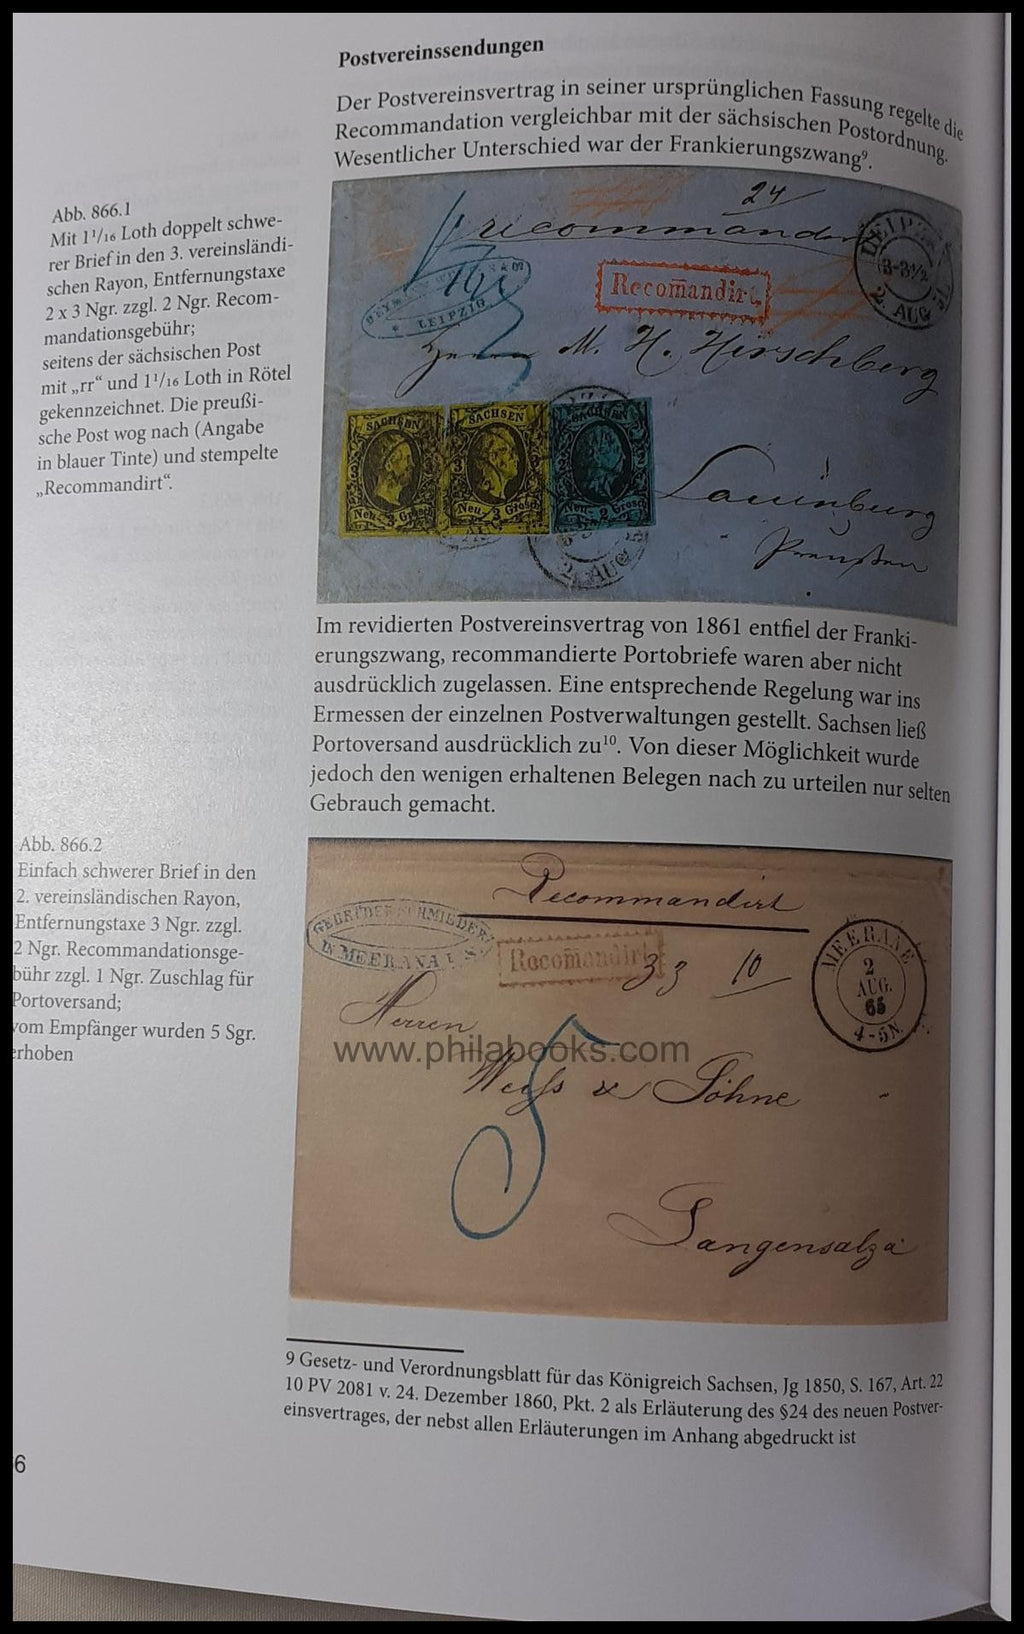 Postvereinssendungen
Der Postvereinsvertrag in seiner ursprünglichen Fassung regelte die
Recommandation vergleichbar mit der sächsischen Postordnung.
Wesentlicher Unterschied war der Frankierungszwang⁹.
Abb. 866.1
Mit 1¹/₁₆ Loth doppelt schwe-
rer Brief in den 3. vereinsländi-
schen Rayon, Entfernungstaxe
2 x 3 Ngr. zzgl. 2 Ngr. Recom-
mandationsgebühr;
seitens der sächsischen Post
mit „rr“ und 1¹/₁₆ Loth in Rötel
gekennzeichnet. Die preußi-
sche Post wog nach (Angabe
in blauer Tinte) und stempelte
„Recommandirt“.
24
recommandirt
LEIPZIG
3-3½
2. AUG
Recom̄andirt.
LEIPZIG
Herrn M. H. Hirschberg
SACHSEN
SACHSEN
SACHSEN
3
Neu 3 Grosch
Neu 3 Grosch
Neu 2 Grosch
Lauenburg
Preußen
2. AUG
Im revidierten Postvereinsvertrag von 1861 entfiel der Franki-
erungszwang, recommandierte Portobriefe waren aber nicht
ausdrücklich zugelassen. Eine entsprechende Regelung war ins
Ermessen der einzelnen Postverwaltungen gestellt. Sachsen ließ
Portoversand ausdrücklich zu¹⁰. Von dieser Möglichkeit wurde
jedoch den wenigen erhaltenen Belegen nach zu urteilen nur selten
Gebrauch gemacht.
Abb. 866.2
Einfach schwerer Brief in den
2. vereinsländischen Rayon,
Entfernungstaxe 3 Ngr. zzgl.
2 Ngr. Recommandationsge-
bühr zzgl. 1 Ngr. Zuschlag für
Portoversand;
vom Empfänger wurden 5 Sgr.
erhoben
Recommandirt
GEBRÜDER SCHMIEDER
MEERANA I. S.
Recom̄andirt
33
10
MEERANE
2
AUG.
65
4-5N.
Herren
www.philabooks.com
Weiss & Söhne
5
Langensalza
9 Gesetz- und Verordnungsblatt für das Königreich Sachsen, Jg 1850, S. 167, Art. 22
10 PV 2081 v. 24. Dezember 1860, Pkt. 2 als Erläuterung des §24 des neuen Postver-
einsvertrages, der nebst allen Erläuterungen im Anhang abgedruckt ist
6